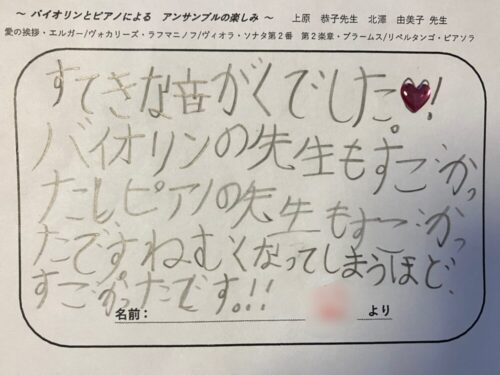 ～ バイオリンとピアノによる　アンサンブルの楽しみ ～　上原　恭子先生　北澤　由美子 先生
愛の挨拶・エルガー/ヴォカリーズ・ラフマニノフ/ヴィオラ・ソナタ第２番　第２楽章・ブラームス/リベルタンゴ・ピアソラ
すてきな音がくでした。!
バイオリンの先生もすごかっ
たしピアノの先生もすごかっ
たですねむくなってしまうほど、
すごかったです。!!
名前：　より